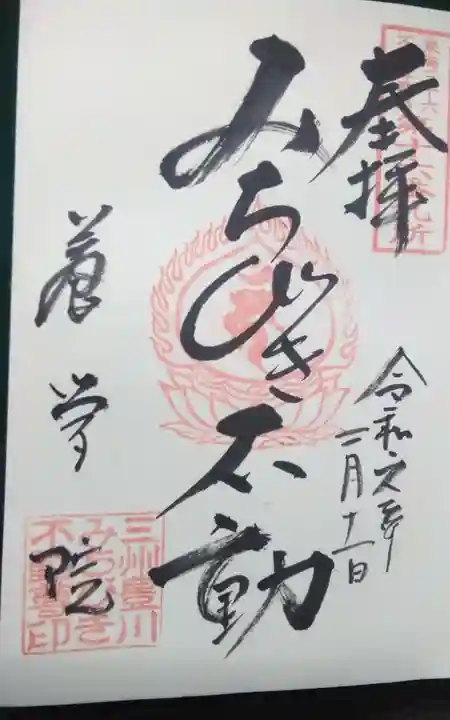 奉拝
第十六番札所
みちびき不動
令和六年
養学院
三州豊川
みちびき
不動尊印